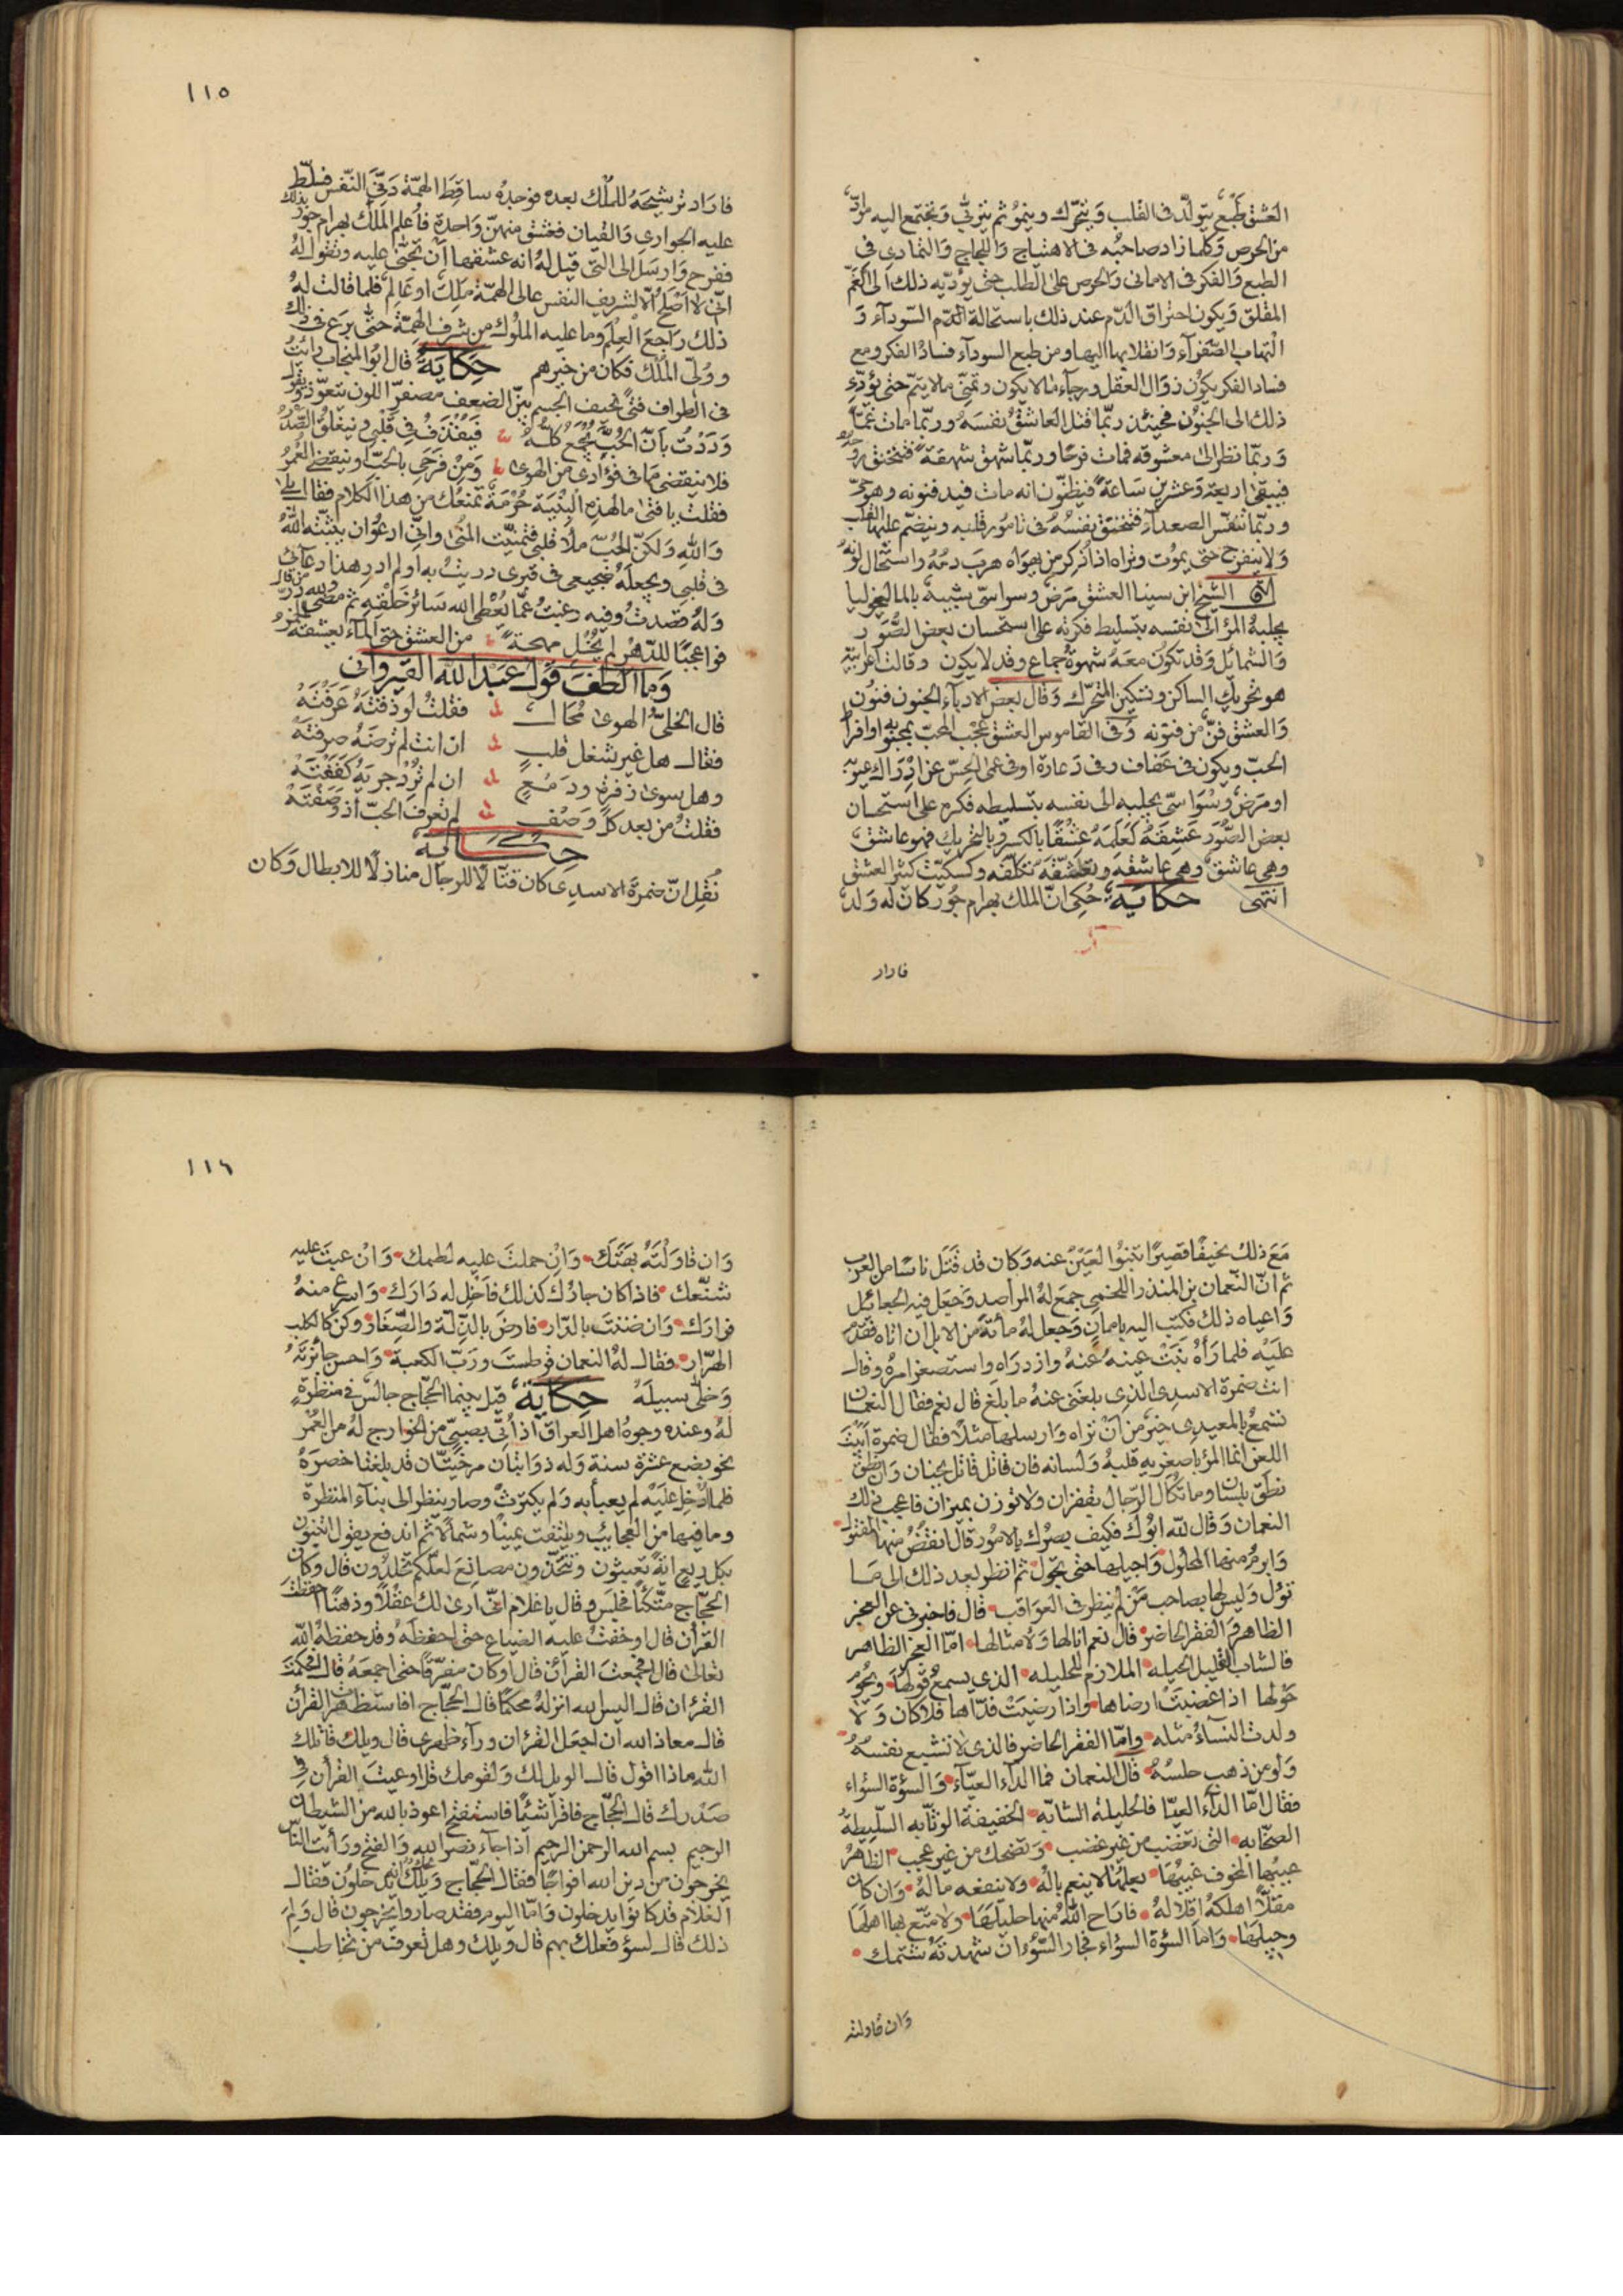 العشق طبع يتولّد فى القلب ويتحرّك وينمو ثم يتربّى ويجتمع اليه موادّ
من الحرص وكلما زاد صاحبه فى الاهتياج واللجاج والتمادى فى
الطبع والفكر فى الامانى والحرص على الطلب حتى يؤدّيه ذلك الى الغمّ
المقلق ويكون احتراق الدّم عند ذلك باستحالة الدّم السّودآء و
التهاب الصّفرآء وانقلابها اليها ومن طبع السودآء فساد الفكر ومع
فساد الفكر يكون زوال العقل ورجآء ما لا يكون وتمنّى ما لا يتمّ حتى يؤدّى
ذلك الى الجنون فحينئذ ربّما قتل العاشق نفسه وربّما مات غمّا
وربّما نظر الى معشوقه فمات فرحا وربّما شهق شهقة فتختنق روحه
فيبقى اربعة وعشرين ساعة فيظنّون انه مات فيدفنونه وهو حىّ
وربّما تنفّس الصعدآء فتختنق نفسه فى تامور قلبه وينضمّ عليها القلب
ولا ينفرج حتى يموت وتراه اذا ذكر من يهواه هرب دمه واستحال لونه
الشيخ ابن سينا العشق مرض وسواسىّ شبيه بالماليخوليا
يجلبه المرء الى نفسه بتسليط فكرته على استحسان بعض الصّور
والشمائل وقد تكون معه شهوة جماع وقد لا يكون وقالت اعرابيّة
هو تحريك الساكن وتسكين المتحرّك وقال بعض الادباء الجنون فنون
والعشق فنّ من فنونه وفى القاموس العشق عجب المحبّ بمحبوبه او افراط
الحبّ ويكون فى عفاف وفى دعارة او فى عمى الحسّ عن ادراك عيوبه
او مرض وسواسىّ يجلبه الى نفسه بتسليطه فكره على استحسان
بعض الصّور عشقه كعلمه عشقا بالكسر وبالتحريك فهو عاشق
وهى عاشق وهى عاشقة وتعشّقه تكلّفه وكسكّيت كثير العشق
انتهى حكاية حكى انّ الملك بهرام جور كان له ولد
فاراد
١١٥
فاراد ترشيحه للملك بعده فوجده ساقط الهمّة دنىّ النّفس فسلّط
عليه الجوارى والقيان فعشق منهنّ واحدة فاعلم الملك بهرام جور بذلك
ففرح وارسل الى التى قيل له انه عشقها ان تجنّى عليه وتقول له
انّى لا اصلح الّا لشريف النفس عالى الهمّة ملك او عالم فلما قالت له
ذلك راجع العلم وما عليه الملوك من شرف الهمّة حتى برع فى ذلك
وولّى الملك فكان من خيرهم حكاية قال ابو المنجاب رائت
فى الطواف فتى نحيف الجسم بيّن الضعف مصفرّ اللون يتعوّذ ويقول
وددت بانّ الحبّ يجمع كلّه فيقذف فى قلبى وينغلق الصّدر
فلا ينقضى ما فى فؤادى من الهوى ومن فرحى بالحبّ او ينقضى العمر
فقلت يا فتى ما لهذه البنية حرمة تمنعك من هذا الكلام فقال بلى
والله ولكنّ الحبّ ملأ قلبى فتمنّيت المنى وانّى ادعو ان يثبّته الله
فى قلبى ويجعله ضجيعى فى قبرى دريت به او لم ادر هذا دعآئى
وله قصدت وفيه رغبت عمّا يعطى الله سائر خلقه ثم مضى ولله درّ من قال
فواعجبا للدّهر لم يخل مهجة من العشق حتى الماء يعشقه الخمر
وما الطف قول عبد الله القيروانى
قال الخلىّ الهوى محال فقلت لو ذقته عرفته
فقال هل غير شغل قلب ان انت لم ترضه صرفته
وهل سوى زفرة ودمع ان لم ترد جريه كففته
فقلت من بعد كل وصف لم تعرف الحبّ اذ وصفته
حكاية
نقل انّ ضمرة الاسدى كان قتّالا للرجال منازلا للابطال وكان
مع ذلك نحيفا قصيرا تنبو العين عنه وكان قد قتل ناسا من العرب
ثم انّ النّعمان بن المنذر اللخمى جمع له المراصد وجعل فيه الجعائل
واعياه ذلك فكتب اليه بامان وجعل له مأئة من الابل ان اتاه فقدم
عليه فلما رآه نبت عينه عنه وازدراه واستصغر امره وقال
انت ضمرة الاسدى الذى بلغنى عنه ما بلغ قال نعم فقال النعمان
تسمع بالمعيدى خير من ان تراه وارسلها مثلا فقال ضمرة ابيت
اللعن انما المرء باصغريه قلبه ولسانه فان قاتل قاتل بجنان وان نطق
نطق بلسان وما تكال الرّجال بقفزان ولا توزن بميزان فاعجب ذلك
النعمان وقال لله ابوك فكيف بصرك بالامور قال انقض منها المفتول
وابرم منها المحلول واجيلها حتى تجول ثم انظر بعد ذلك الى ما
تؤل وليس لها بصاحب من لم ينظر فى العواقب قال فاخبرنى عن العجز
الظاهر والفقر الحاضر قال نعم انا لها ولامثالها امّا العجز الظاهر
فالشاب القليل الحيله الملازم للحليله الذى يسمع قولها ويحوم
حولها اذا غضبت ارضاها واذا رضيت فدّاها فلا كان ولا
ولدت النسآء مثله وامّا الفقر الحاضر فالذى لا تشبع نفسه
ولو من ذهب حلسه قال النعمان فما الدآء العيّآء والسؤة السؤاء
فقال امّا الدآء العيّا فالحليلة الشابّه الخفيفة الوثّابه السليطة
الصخّابه التى تغضب من غير غضب وتضحك من غير عجب الظاهر
عيبها المخوف غيبها بعلها لا ينعم باله ولا ينفعه ماله وان كان
مقلّا اهلكه اقلاله فاراح الله منها حليلها ولا متّع بها اهلها
وجيلها وامّا السؤة السؤاء فجار السّؤ ان شهدته شتمك
وان قاولته
١١٦
وان قاولته بهتك وان حملت عليه لطمك وان غبت عليه
شنّعك فاذا كان جارك كذلك فاخل له دارك واسرع منه
فرارك وان ضننت بالدّار فارض بالذّلة والصّغار وكن كالكلب
الهرّار فقال له النعمان قرطست وربّ الكعبة واحسن جائزته
وخلّى سبيله حكاية قيل بينما الحجّاج جالس فى منظرة
له وعنده وجوه اهل العراق اذ أتى بصبىّ من الخوارج له من العمر
نحو بضع عشرة سنة وله ذوابتان مرخيّتان قد بلغتا خصره
فلما ادخل عليه لم يعبأ به ولم يكترث وصار ينظر الى بنآء المنظرة
وما فيها من العجائب ويلتفت يمينا وشمالا ثم اندفع يقول اتبنون
بكل ريع اية تعبثون وتتّخذون مصانع لعلّكم تخلدون قال وكان
الحجّاج متّكئا فجلس وقال يا غلام انّى ارى لك عقلا وذهنا احفظت
القرأن قال اوخفت عليه الضياع حتى احفظه وقد حفظه الله
تعالى قال افجمعت القرأن قال اوكان مفرّقا حتى اجمعه قال افحكمت
القرأن قال اليس الله انزله محكما قال الحجّاج افاستظهرت القرأن
قال معاذ الله ان اجعل القرأن ورآء ظهرى قال ويلك قاتلك
الله ماذا اقول قال الويل لك ولقومك قل اوعيت القرأن فى
صدرك قال الحجّاج فاقرأ شيئا فاستفتح اعوذ بالله من الشيطان
الرجيم بسم الله الرحمن الرحيم اذا جآء نصر الله والفتح ورأيت النّاس
يخرجون من دين الله افواجا فقال الحجّاج ويلك انهم يدخلون فقال
الغلام قد كانوا يدخلون وامّا اليوم فقد صاروا يخرجون قال ولم
ذلك قال لسؤ فعلك بهم قال ويلك وهل تعرف من تخاطب